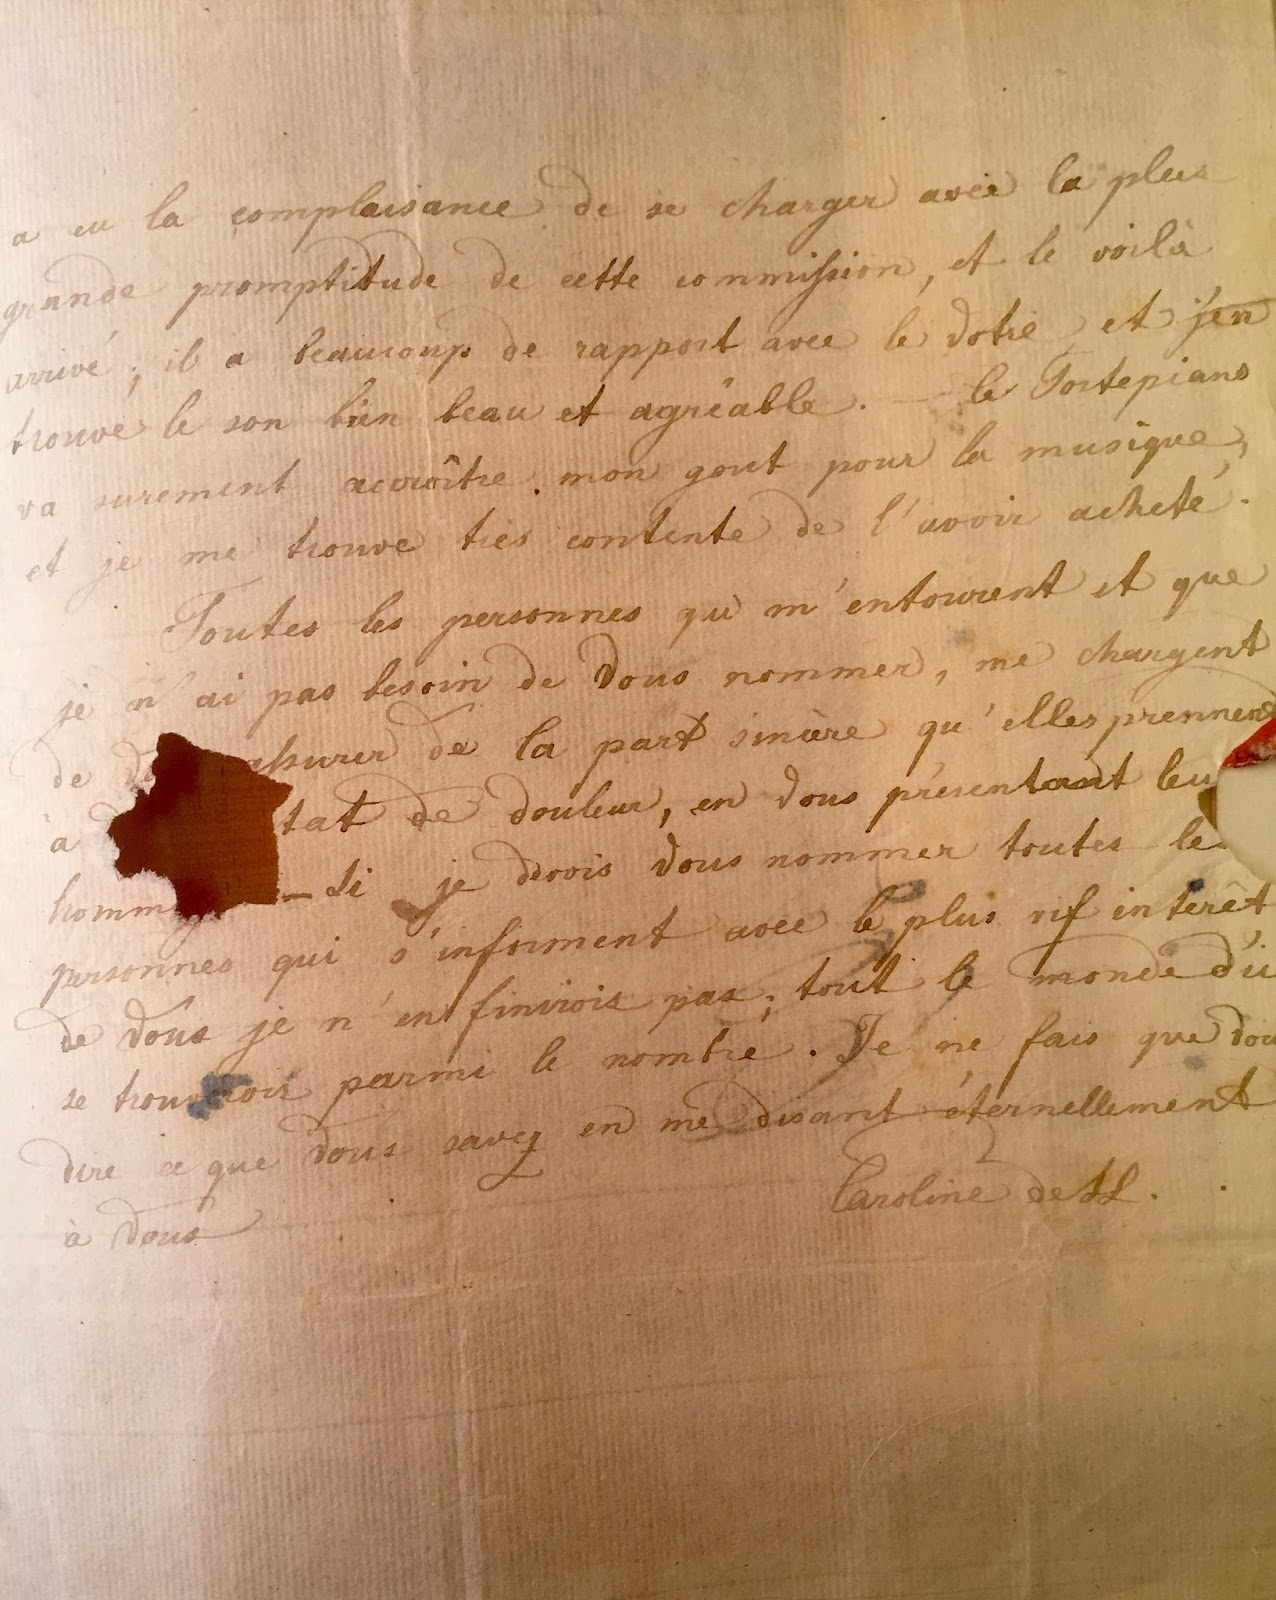 a eu la complaisance de se charger avec la plus
grande promptitude de cette commission, et le voilà
arrivé; il a beaucoup de rapport avec le vôtre et j'en
trouve le son bien beau et agréable. — le Fortepiano
va surement accroître mon gout pour la musique,
et je me trouve très contente de l'avoir acheté.
Toutes les personnes qui m'entourent et que
je n'ai pas besoin de Vous nommer, me chargent
de assurer de la part sincère qu'elles prennent
à tat de douleur, en Vous présentant leu
homm — Si je devois Vous nommer toutes les
personnes qui s'informent avec le plus vif interêt
de Vous je n'en finirois pas; tout le monde d'ici
se trouveroit parmi le nombre. Je ne fais que Vous
dire ce que Vous savez en me disant éternellement
à Vous
Caroline de